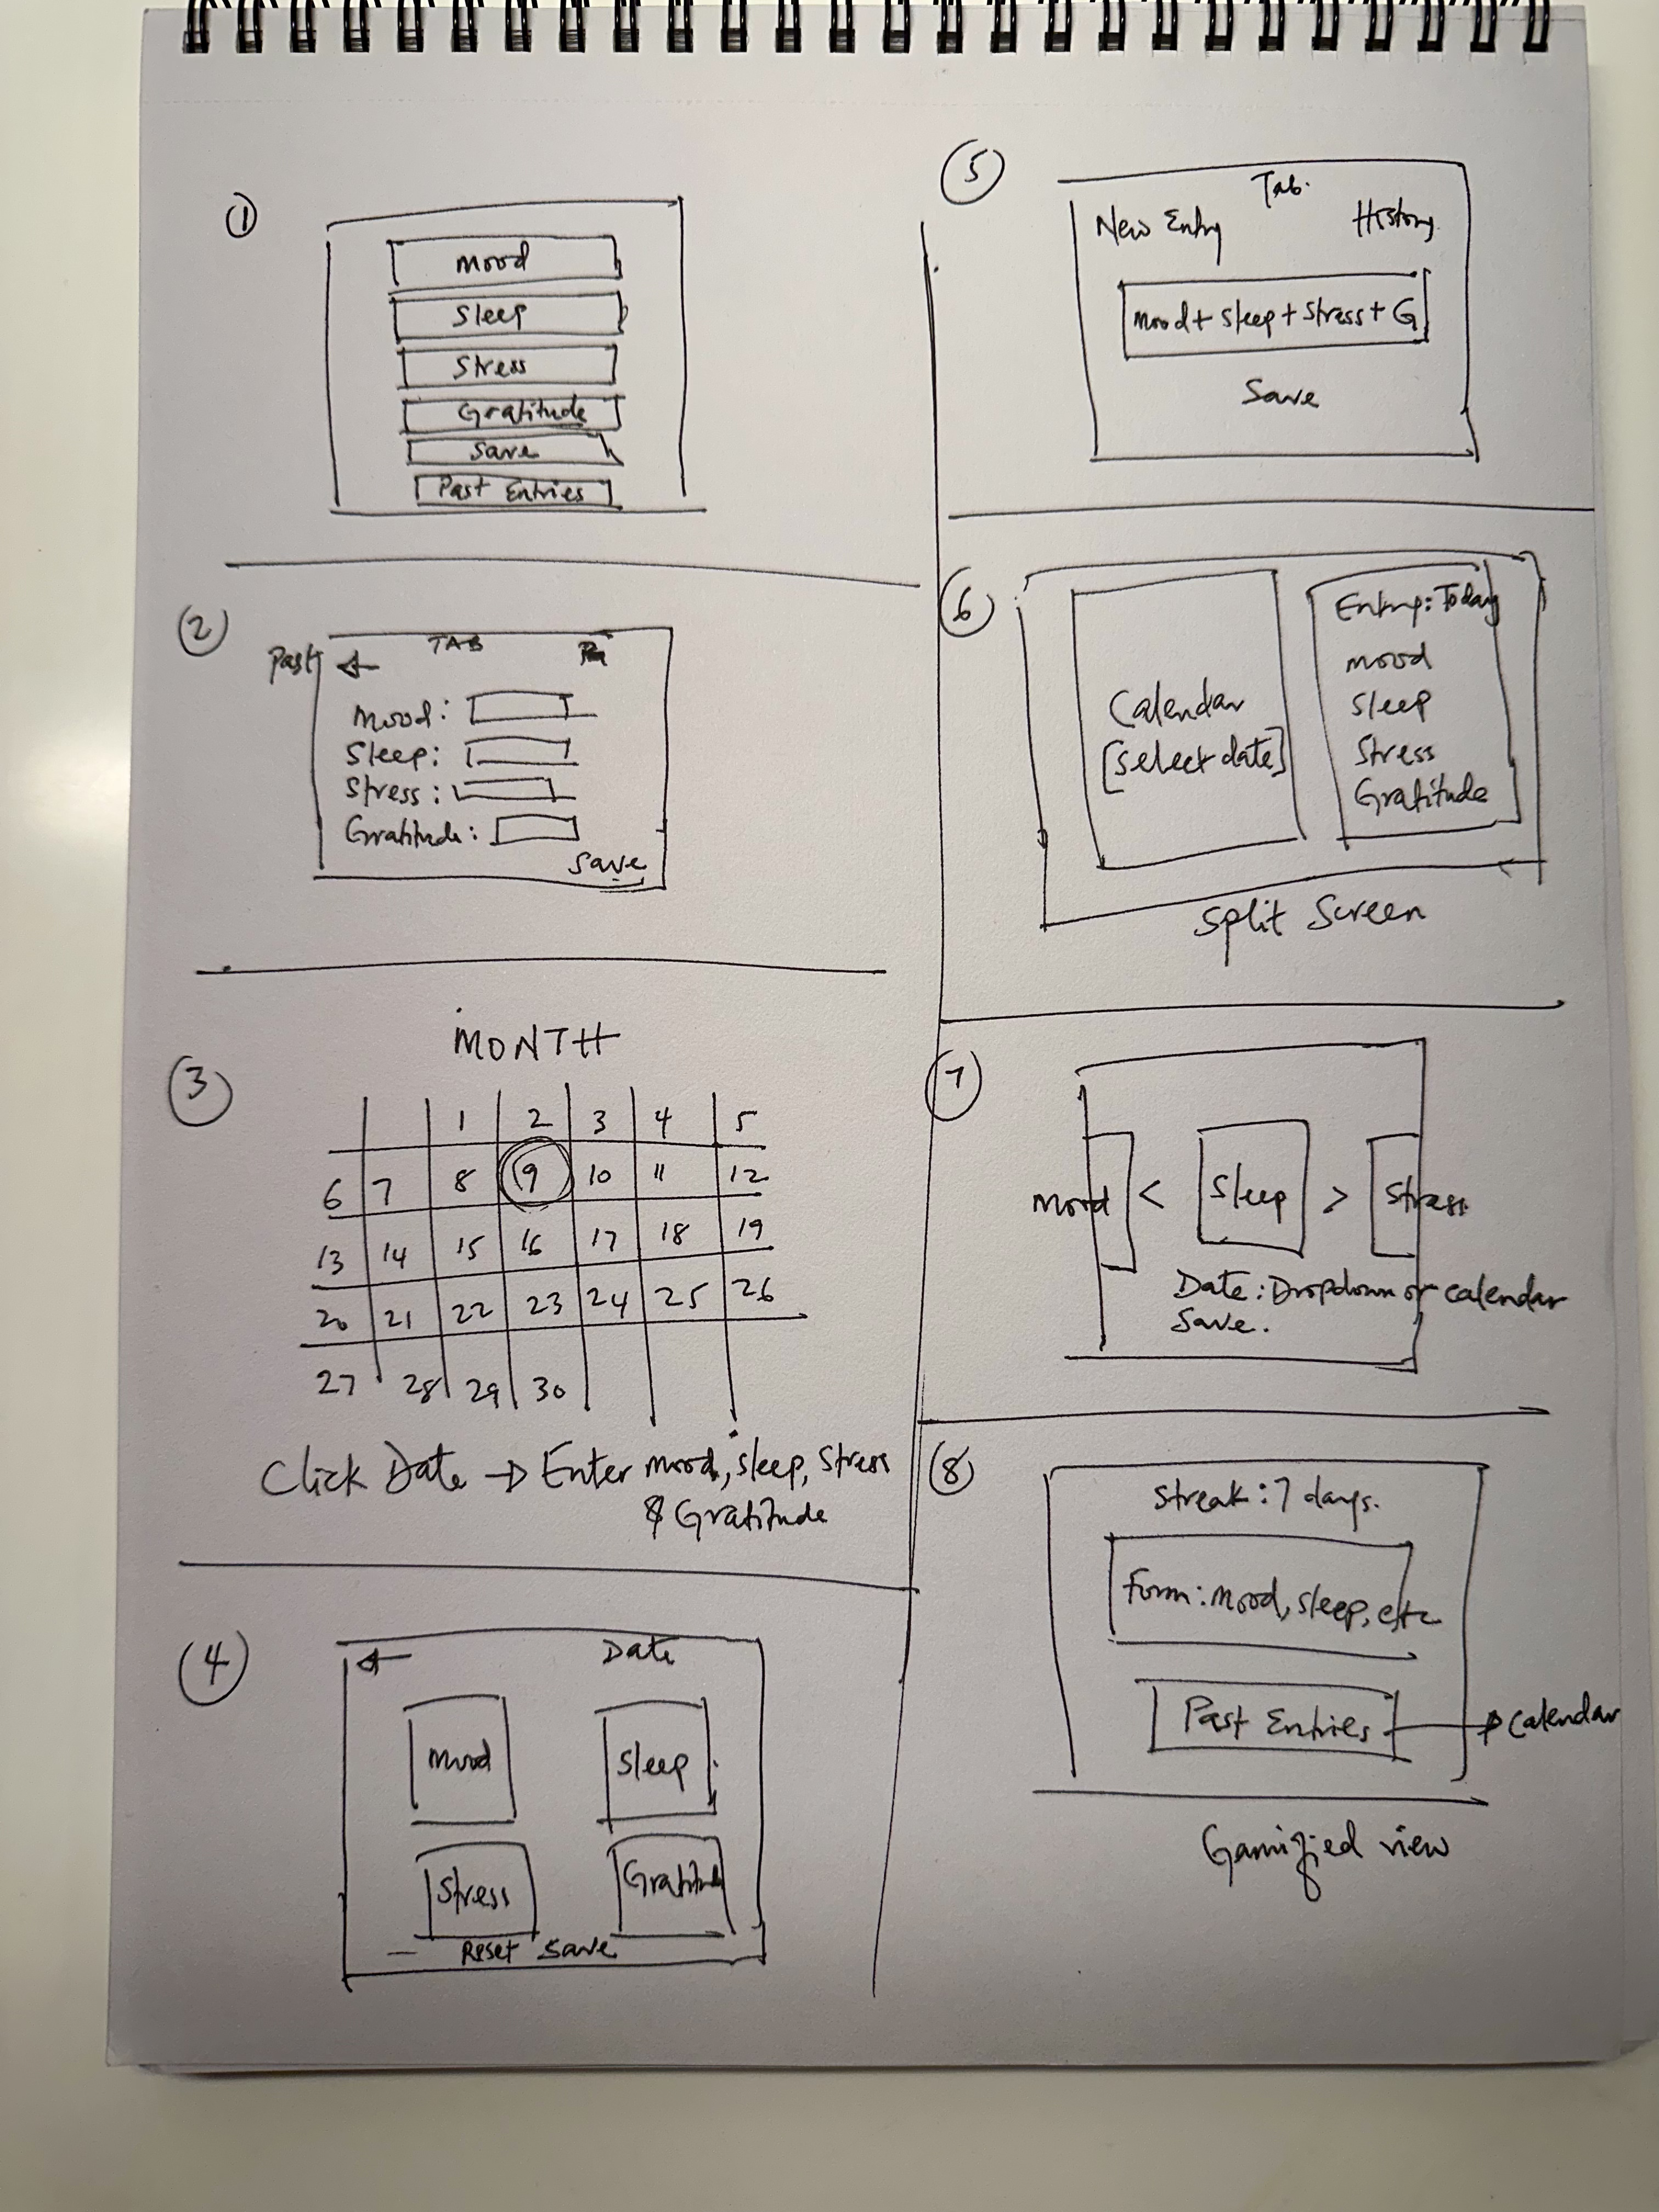 ①
Mood
Sleep
Stress
Gratitude
Save
Past Entries
②
Past TAB
Mood:
Sleep:
Stress:
Gratitude:
Save
③
MONTH
1 2 3 4 5
6 7 8 9 10 11 12
13 14 15 16 17 18 19
20 21 22 23 24 25 26
27 28 29 30
Click Date → Enter mood, sleep, stress
& Gratitude
④
← Date
Mood Sleep
Stress Gratitude
Reset Save
⑤
Tab.
New Entry History
Mood + Sleep + Stress + G
Save
⑥
Entry: Today
Mood
Sleep
Stress
Gratitude
Calendar
[select date]
Split Screen
⑦
Mood < Sleep > Stress
Date: Dropdown or calendar
Save.
⑧
Streak: 7 days.
Form: Mood, sleep, etc
Past Entries → Calendar
Gamified view